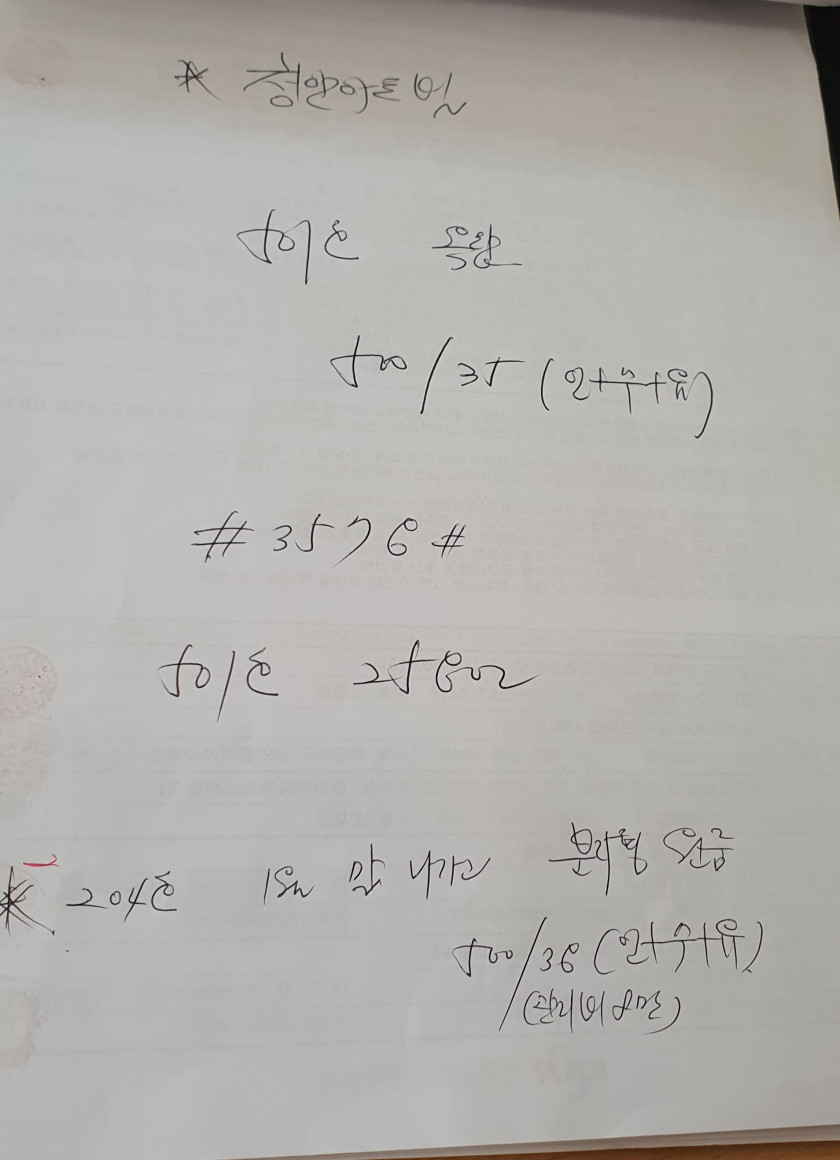 * 청안아트빌
501호 옥탑
500/35 (인+수+유)
#3576#
501호
204호 1월 말 나가고 분리형 원룸
500/36 (인+수+유)
(관리비 8만)